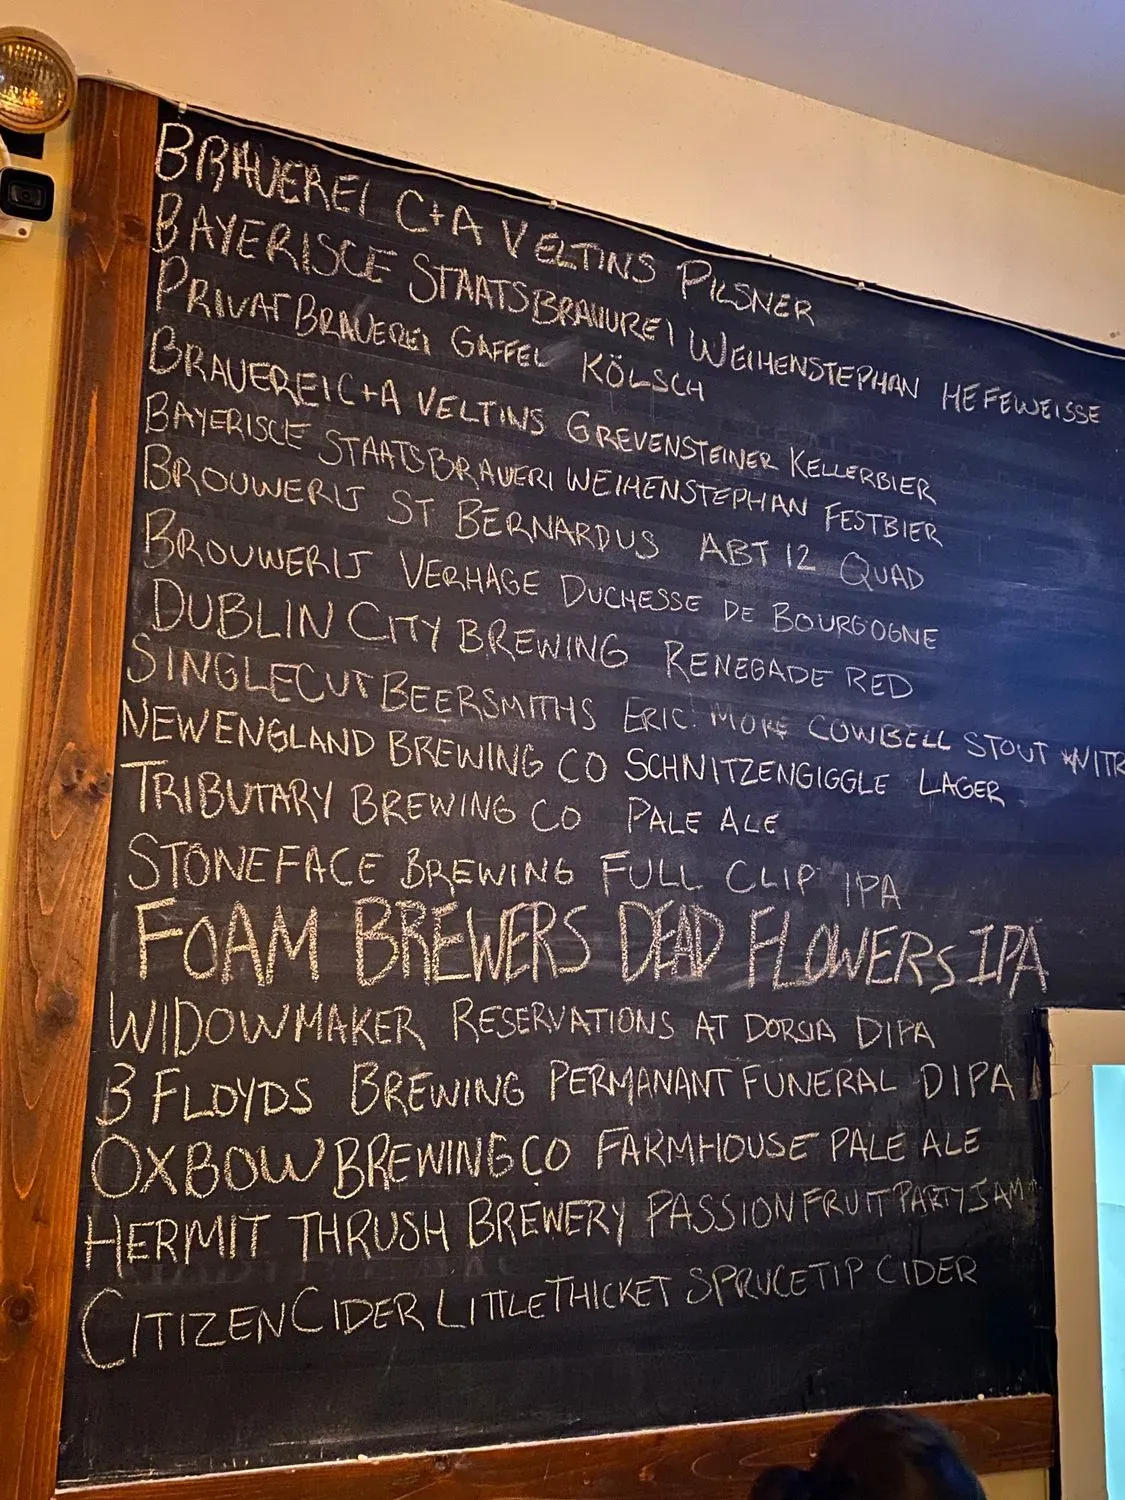 BRAUEREI C+A VELTINS PILSNER
BAYERISCE STAATSBRAUUREI WEIHENSTEPHAN HEFEWEISSE
PRIVATBRAUEREI GAFFEL KÖLSCH
BRAUEREI C+A VELTINS GREVENSTEINER KELLERBIER
BAYERISCE STAATSBRAUERI WEIHENSTEPHAN FESTBIER
BROUWERIJ ST BERNARDUS ABT 12 QUAD
BROUWERIJ VERHAGE DUCHESSE DE BOURGOGNE
DUBLIN CITY BREWING RENEGADE RED
SINGLECUT BEERSMITHS ERIC: MORE COWBELL STOUT *NITR
NEW ENGLAND BREWING CO SCHNITZENGIGGLE LAGER
TRIBUTARY BREWING CO PALE ALE
STONEFACE BREWING FULL CLIP IPA
FOAM BREWERS DEAD FLOWERS IPA
WIDOWMAKER RESERVATIONS AT DORSIA DIPA
3 FLOYDS BREWING PERMANANT FUNERAL DIPA
OXBOW BREWING CO FARMHOUSE PALE ALE
HERMIT THRUSH BREWERY PASSIONFRUIT PARTY JAM
CITIZEN CIDER LITTLE THICKET SPRUCE TIP CIDER